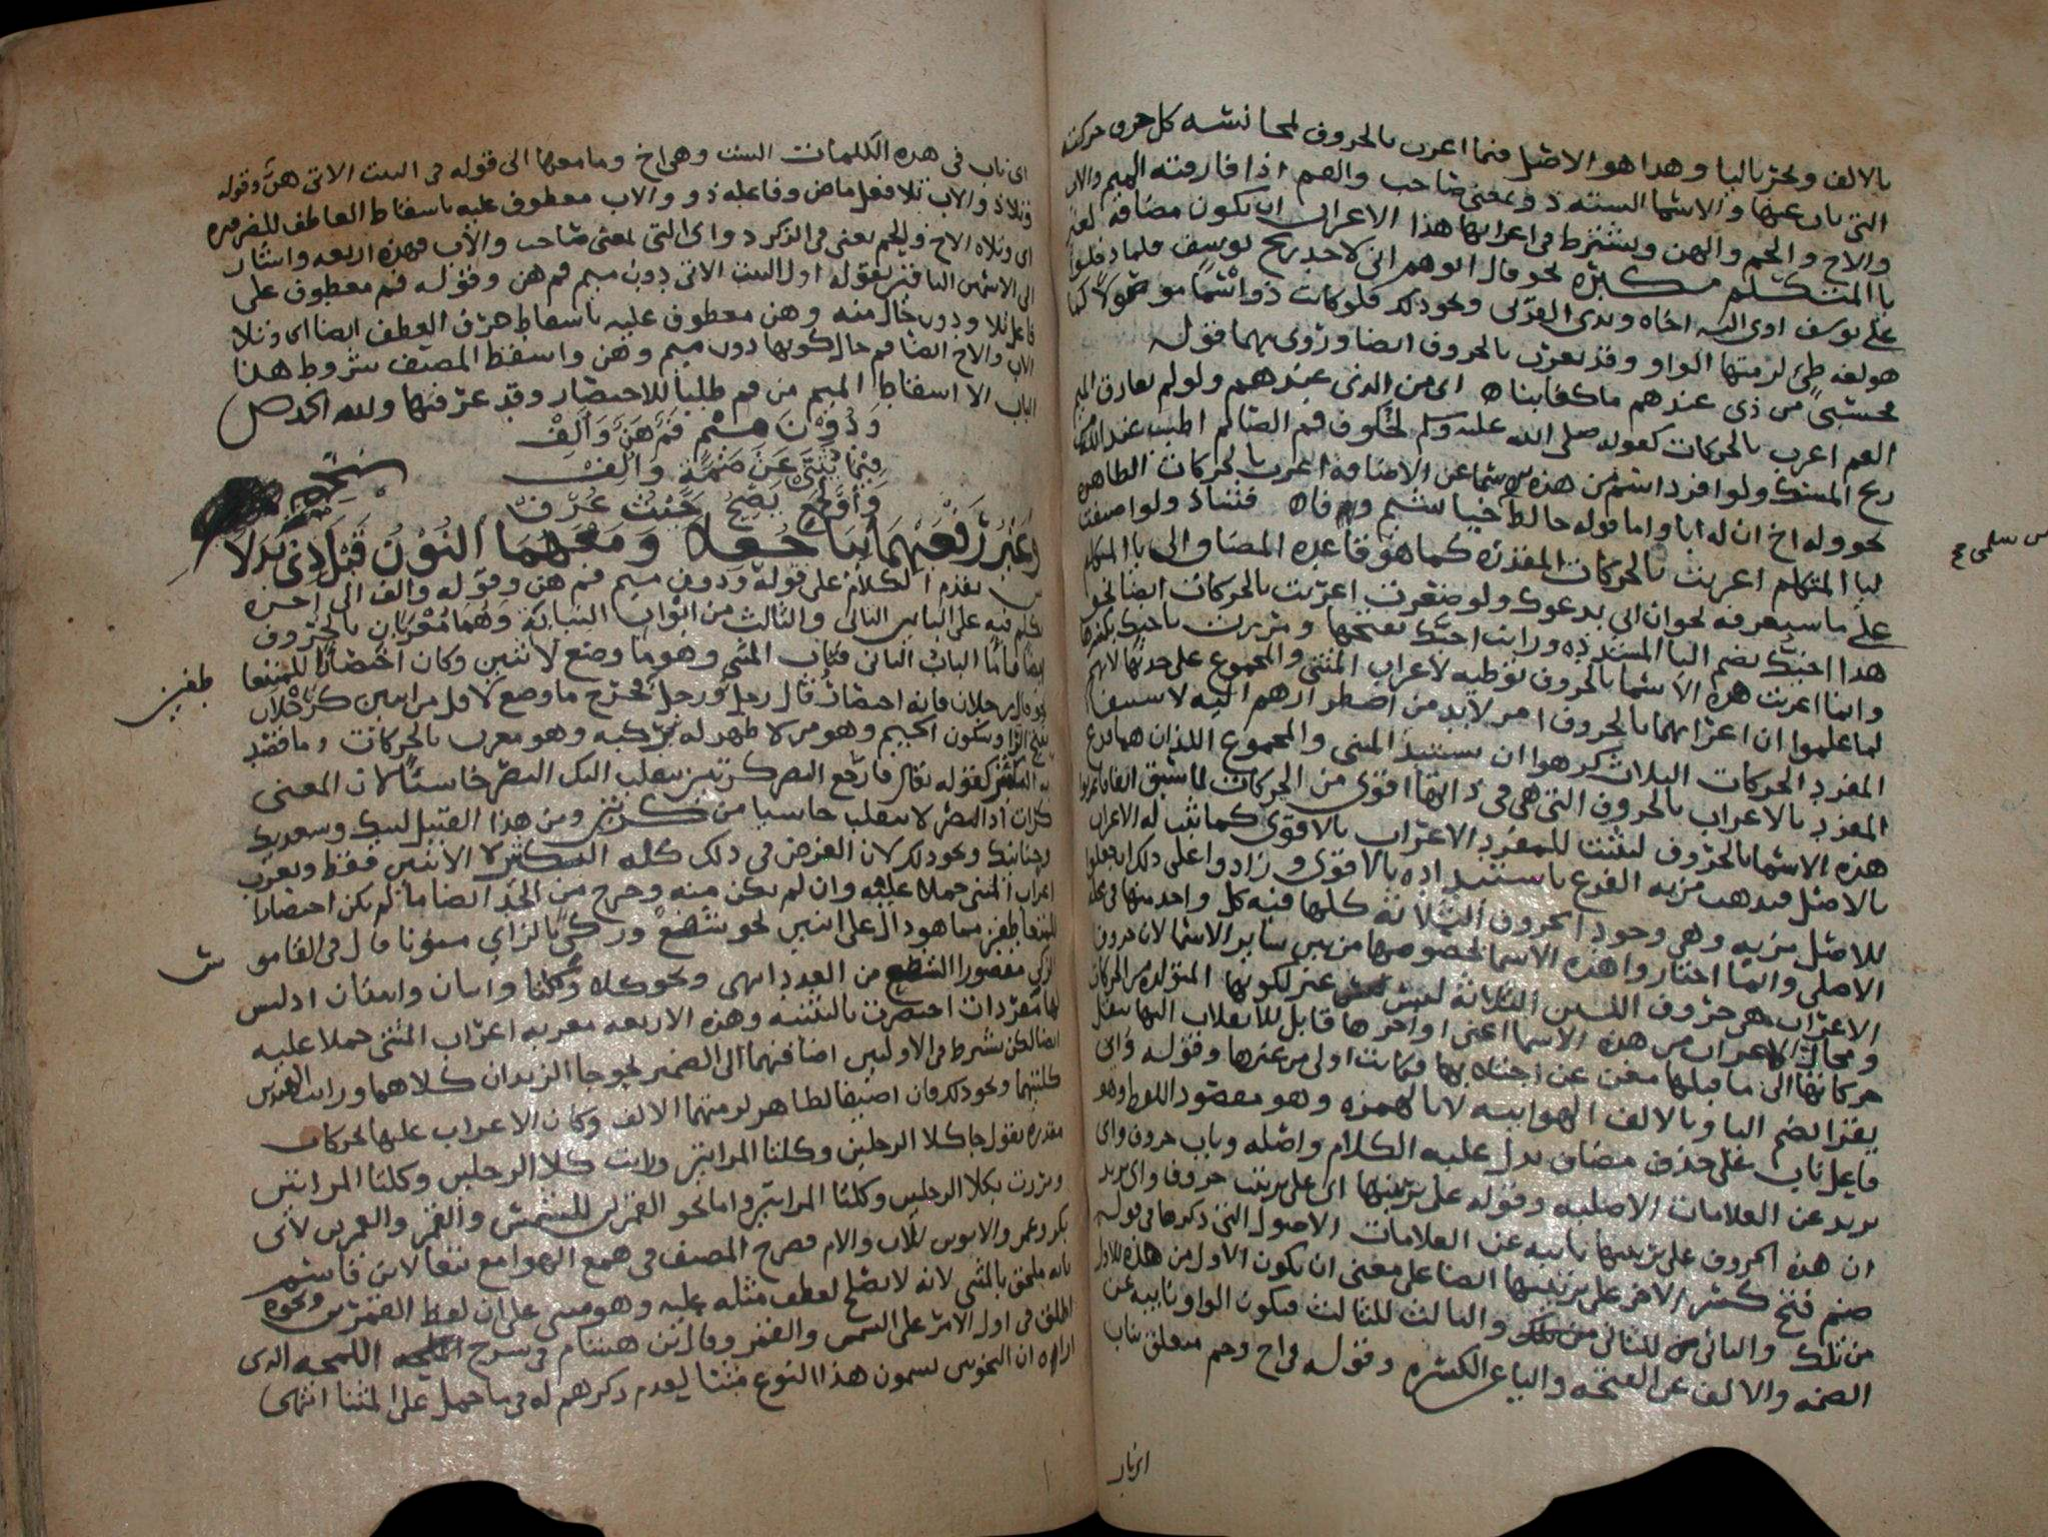 بالالف وتجر باليا وهذا هو الاصل فيما اعرب بالحروف لمجانسه كل حرف حركته
التى ناب عنها والاسما السته ذو بمعنى صاحب والفم اذا فارقته الميم والاب
والاخ والحم والهن ويشترط فى اعرابها هذا الاعراب ان تكون مضافة لغير
يا المتكلم مكبره نحو قال ابوهم انى لاجد ريح يوسف فلما دخلوا
على يوسف اوى اليه اخاه وبدى القربى ونحو ذلك فلو كانت ذو اسما موصولا كما
هو لغة طى لزمتها الواو وقد تعرب بالحروف ايضا وروى بهما قوله
فحسبى من ذى عندهم ما كفانيا اى من الذى عندهم ولو لم تفارق الميم
الفم اعرب بالحركات كقوله صلى الله عليه وسلم لخلوف فم الصائم اطيب عند الله
ريح المسك ولو افرد اسم من هذه عن الاضافة اعرب بالحركات الظاهره
نحو وله اخ ان له ابا واما قوله خالط خياشيم وفا فشاذ ولو اضيفت
ليا المتكلم اعربت بالحركات المقدره كما هو قاعده المضاف الى يا المتكلم
على ما سيعرفه نحو ان ابى يدعوك ولو صغرت اعربت بالحركات ايضا نحو
هذا اخيك بضم اليا المشدده ورايت اخيك بفتحها ومررت باخيك بكسرها
وانما اعربت هذه الاسما بالحروف توطيه لاعراب المثنى والمجموع على حدته لانهم
لما علموا ان اعرابهما بالحروف امر لابد من اضطرارهم اليه لاستيفا
المفرد الحركات الثلاث كرهوا ان يستبد المثنى والمجموع اللذان هما فرع
المفرد بالاعراب بالحروف التى هى فى ذاتها اقوى من الحركات
هذه الاسما بالحروف ليثبت للمفرد الاعراب بالاقوى كما ثبت له الاعراب
بالاصل فيذهب مزيه الفرع باستبداده بالاقوى وزادوا على ذلك ان جعلوا
للاصل مزيه وهى وجود الحروف الثلاثة كلها فيه كل واحد منها فى محله
الاصلى وانما اختاروا هذه الاسما لخصوصها من بين ساير الاسما لان حروف
الاعراب هى حروف اللين الثلاثة ليس غير لكونها المتولده من الحركات
ومحال الاعراب من هذه الاسما اعنى اواخرها قابل للانقلاب اليها بنقل
حركاتها الى ما قبلها مغن عن اجتلابها فكانت اولى من غيرها وقوله واى
يقرا بضم اليا وبالالف الهوابيه لا بالهمزه وهو مقصود اللفظ وهو
فاعل ناب على حذف مضاف يدل عليه الكلام واصله وناب حروف واى
يريد عن العلامات الاصليه وقوله على ترتيبها اى على ترتيب حروف واى يريد
ان هذه الحروف على ترتيبها نايبه عن العلامات الاصول التى ذكرها فى قوله
ضم فتح كسر الاخر على ترتيبها ايضا على معنى ان يكون الاول من هذه للاول
من تلك والثانى للثانى والثالث للثالث فيكون الواو نايبه عن
الضمه والالف عن الفتحه واليا عن الكسره وقوله فى اخ وحم متعلق بناب
اى ناب فى هذه الكلمات الست وهى اخ وما معها الى قوله فى البيت الاتى هن وقوله
وتلا ذو والاب تلا فعل ماض وفاعله ذو والاب معطوف عليه باسقاط العاطف للضروره
اى وتلاه الاخ والحم يعنى فى الذكر ذو اى التى بمعنى صاحب والاب فهذه اربعه واشار
الى الاسمين الباقيين بقوله اول البيت الاتى دون ميم فم هن وقوله فم معطوف على
فاعل تلا ودون حال منه وهن معطوف عليه باسقاط حرف العطف ايضا اى وتلا
الاب والاخ ايضا فم حال كونها دون ميم وهن واسقط المصنف شروط هذا
الباب الا اسقاط الميم من فم طلبا للاختصار وقد عرفتها ولله الحمد ص
وَدُوْنَ مِيْمٍ فَمٌ هَنٌ وَاَلِفْ
فِيْمَا يُثَنَّى عَنْ ضَمَّةٍ وَالِفْ
وَ يَصِحُّ حَيْثُ عُرِفْ
وَمَعَهُمَا النُّوْنُ
ش تقدم الكلام على قوله ودون ميم فم هن وقوله والف الى اخره
تكلم فيه على البابين الثانى والثالث من ابواب النيابة وهما معربان بالحروف
ايضا فاما الباب الثانى فباب المثنى وهو ما وضع لاثنين وكان اختصارا للمتفقا
طفين
نحو قال رجلان فانه اختصار قال رجل ورجل فخرج ما وضع لاقل من اثنين كرجلان
بفتح الرا وسكون الجيم وهو من لا ظهر له يركبه وهو معرب بالحركات وما قصد
به التكثير كقوله تعالى فارجع البصر كرتين ينقلب اليك البصر خاسئا لان المعنى
كرات اذ البصر لا ينقلب خاسيا من كرتين ومن هذا القبيل لبيك وسعديك
وحنانيك ونحو ذلك لان الغرض فى ذلك كله التكثير لا الاثنين فقط ويعرب
اعراب المثنى حملا عليه وان لم يكن منه وخرج من الحد ايضا ما لم يكن اختصارا
للمتعاطفين مما هو دال على اثنين نحو شفع وزكى بالزاى منونا قال فى القامو
س
الزكى مقصورا الشفع من العدد انتهى ونحو كلا وكلتا واثنان واثنتان اذ ليس
لها مفردات اختصرت بالتثنيه وهذه الاربعه معربه اعراب المثنى حملا عليه
ايضا لكن بشرط فى الاوليين اضافتهما الى الضمير نحو جا الزيدان كلاهما ورايت الهندين
كلتيهما ونحو ذلك فان اضيفا لظاهر لزمتهما الالف وكان الاعراب عليها بحركات
مقدره تقول جا كلا الرجلين وكلتا المراتين ورايت كلا الرجلين وكلتا المراتين
ومررت بكلا الرجلين وكلتا المراتين واما نحو القمرين للشمس والقمر والعمرين لابى
بكر وعمر والابوين للاب والام فصرح المصنف فى همع الهوامع تبعا لابن قاسم
بانه ملحق بالمثنى لانه لا يصلح لعطف مثله عليه وهو مبنى على ان لفظ القمرين ونحوه
اطلق فى اول الامر على الشمس والقمر وقال ابن هشام فى شرح اللمحه الذى
اراه ان النحويين يسمون هذا النوع مثنا لعدم ذكرهم له فيما حمل على المثنا انتهى